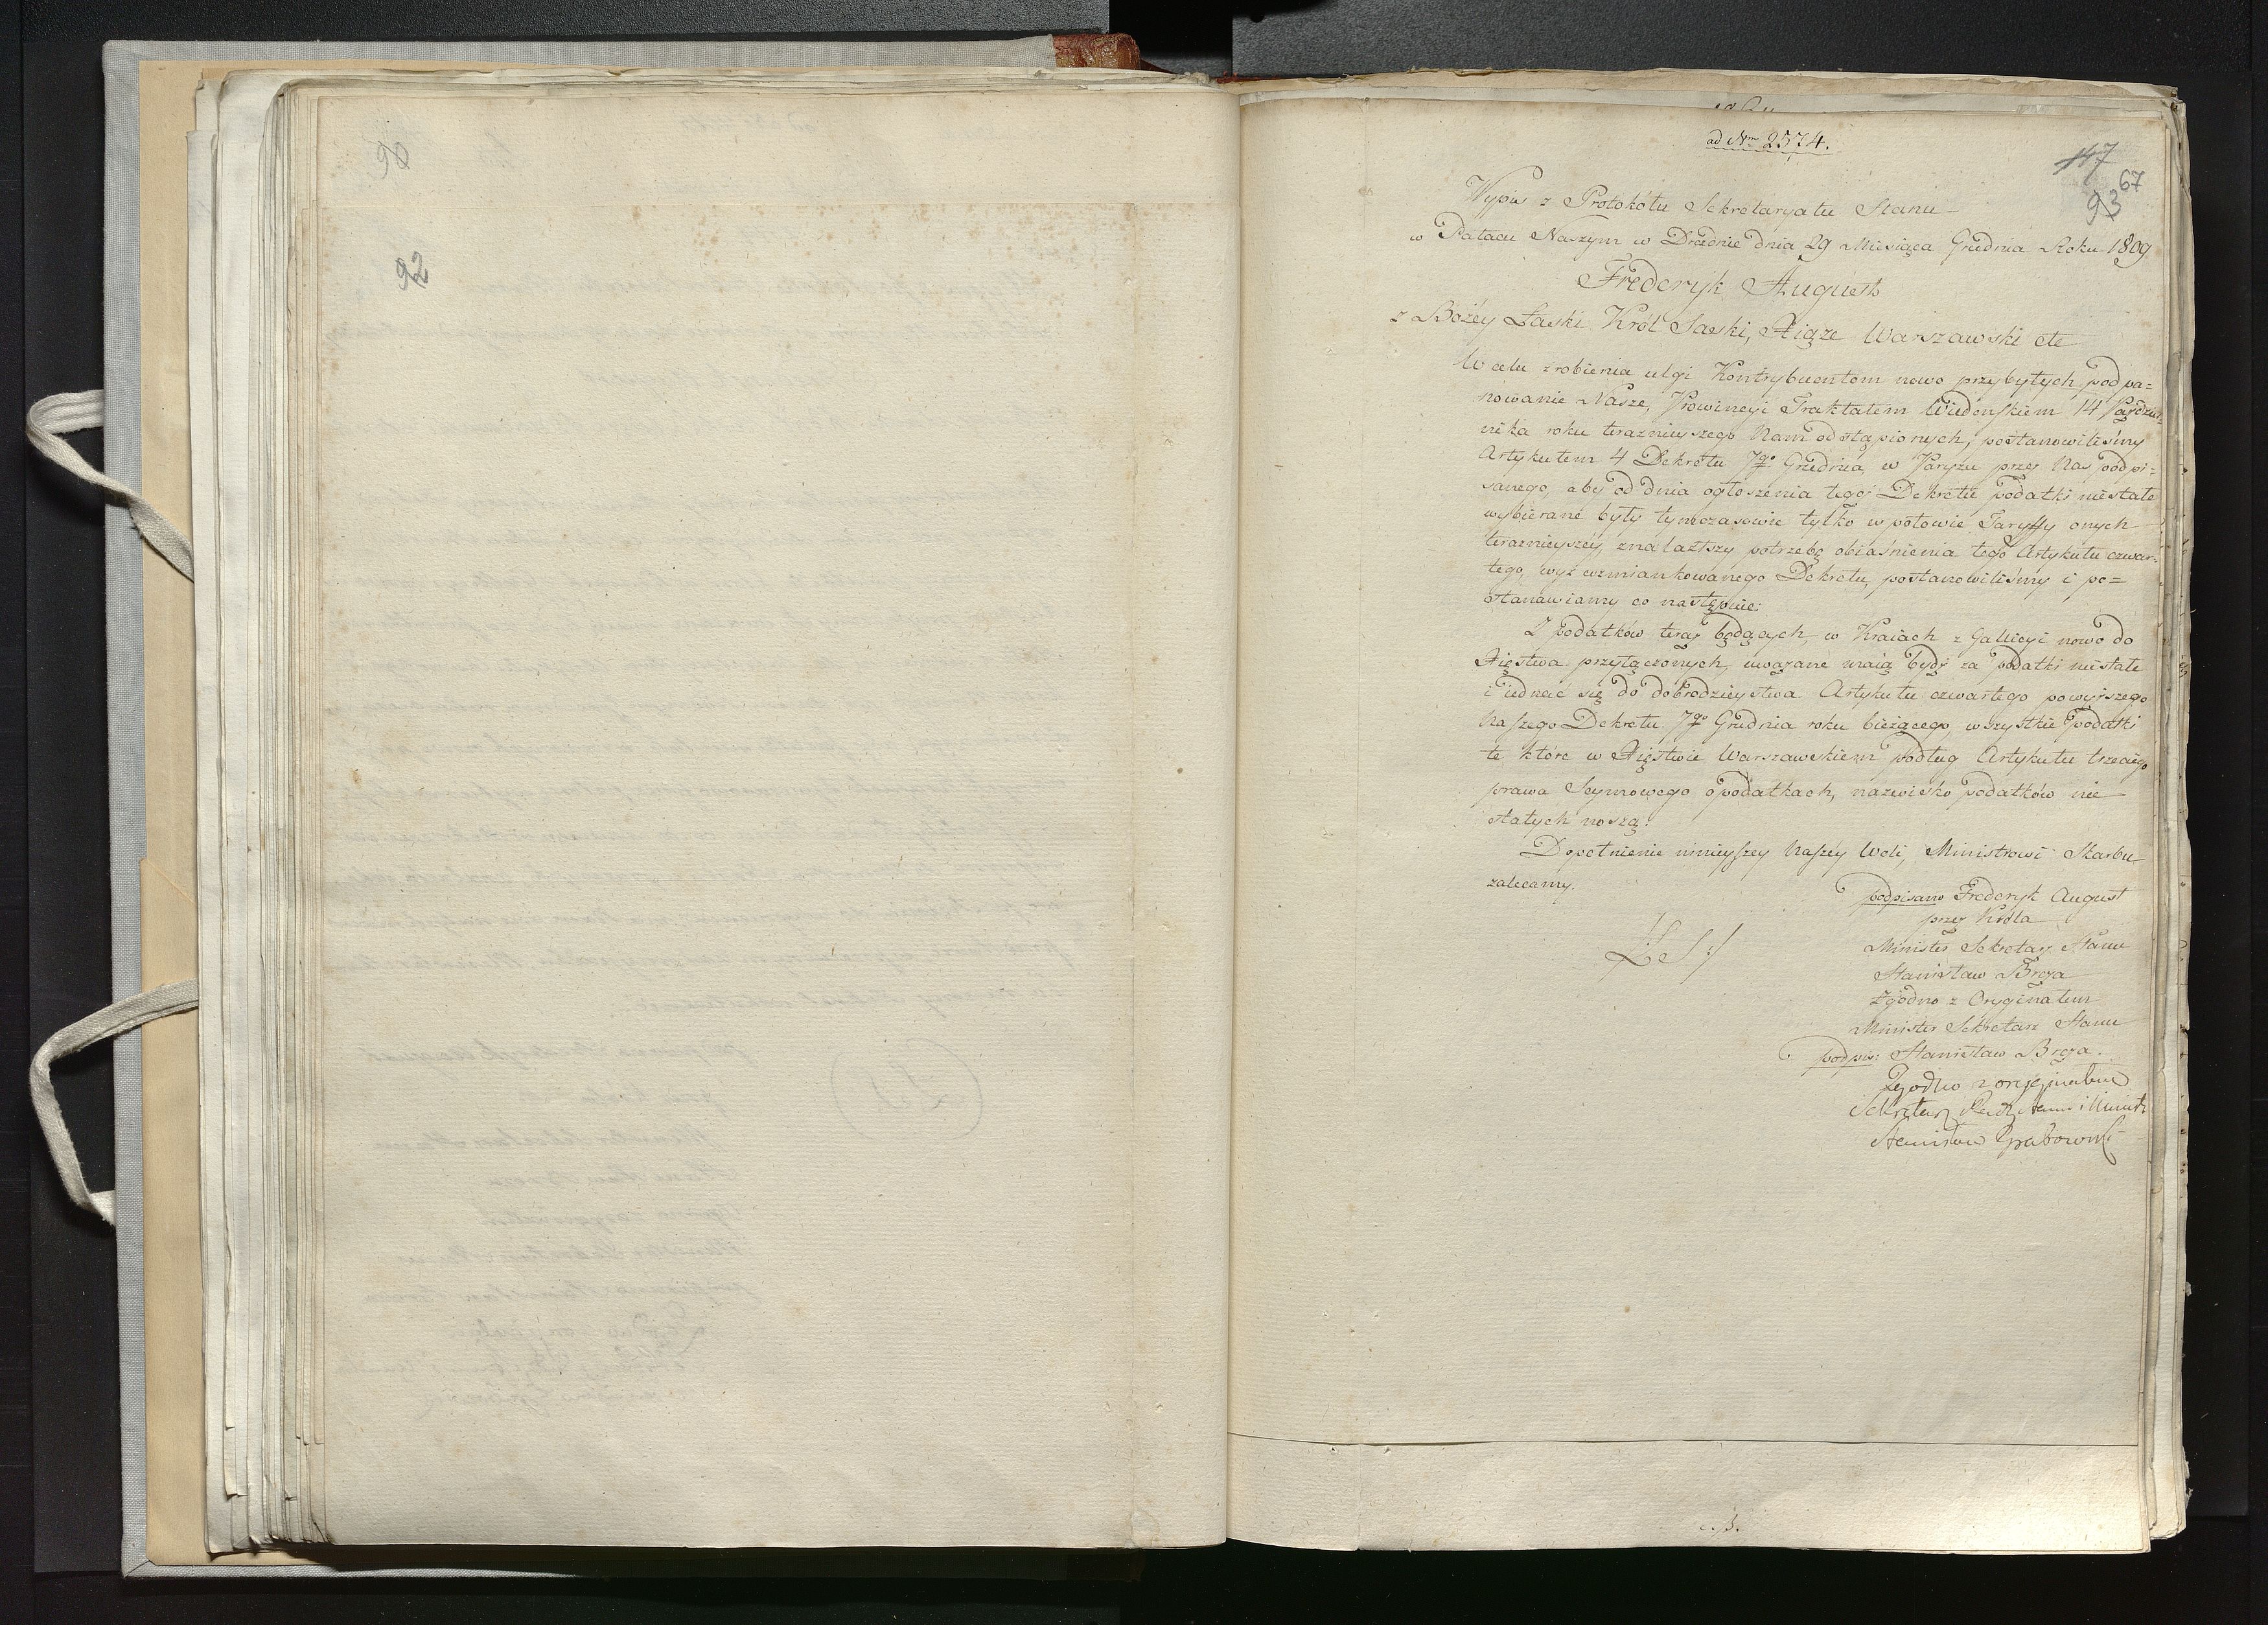 90
92
ad Nrm 2574.
147
67
93
Wypis z Protokółu Sekretaryatu Stanu
w Pałacu Naszym w Dreźnie dnia 29 Miesiąca Grudnia Roku 1809
Fryderyk August
z Bożey Łaski Król Saski, Xiąże Warszawski etc
W celu zrobienia ulgi Kontrybuentom nowo przybyłych pod pa=
nowanie Nasze, Prowincyi Traktatem Wiedeńskiem 14 Paździer=
nika roku teraznieyszego Nam odstąpionych, postanowiliśmy
Artykułem 4 Dekretu 7go Grudnia, w Paryżu przez Nas podpi=
sanego, aby od dnia ogłoszenia tegoż Dekretu podatki niestałe
wybierane były tymczasowie tylko w połowie Taryffy onych
teraznieyszéy, znalazłszy potrzebę obiaśnienia tego Artykułu czwar=
tego, wyż wzmiankowanego Dekretu, postanowiliśmy i po=
stanawiamy co następuie:
Z podatków teraz będących, w Kraiach z Gallicyi nowo do
Xięstwa przyłączonych, uważane maią bydź za podatki niestałe
i iednać się do dobrodzieystwa Artykułu czwartego powyższego
Naszego Dekretu 7go Grudnia roku bieżącego, wszystkie podatki
te które w Xięstwie Warszawskiem podług Artykułu trzeciego
prawa Seymowego o podatkach, nazwisko podatków nie
stałych noszą.
Dopełnienie ninieyszey Naszéy Woli, Ministrowi Skarbu
zalecamy.
podpisano Frederyk August
przez Króla
Minister Sekretarz Stanu
Stanisław Breza
Zgodno z Oryginałem
Minister Sekretarz Stanu
podpis: Stanisław Breza.
/: L S :/
Zgodno z oryginałem
Sekretarz Rady Stanu i Ministr
Stanisław Grabowski